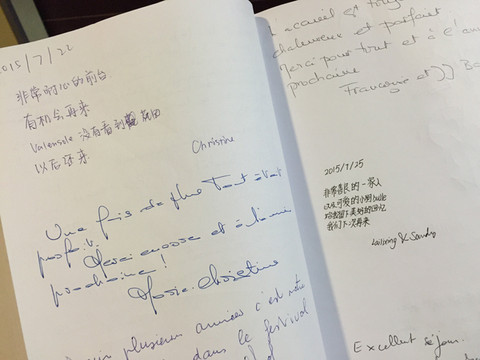 2015/7/22
非常时心的前台
有机会再来
Valensole 没有看到 花田
以后还来
Christine
Une fois de plus Tout était
parfait.
Merci encore et à l'année
prochaine!
Marie-Christine
plusieurs années c'est notre
dans le festival
accueil et
chaleureux et parfait
Merci pour tout et à l'
prochaine
Françoise et JJ
2015/7/25
非常善良的一家人
以及可爱的小狗 bulle
给我留下美好的回忆
我们下次再来
& Sandro
Excellent séjour.